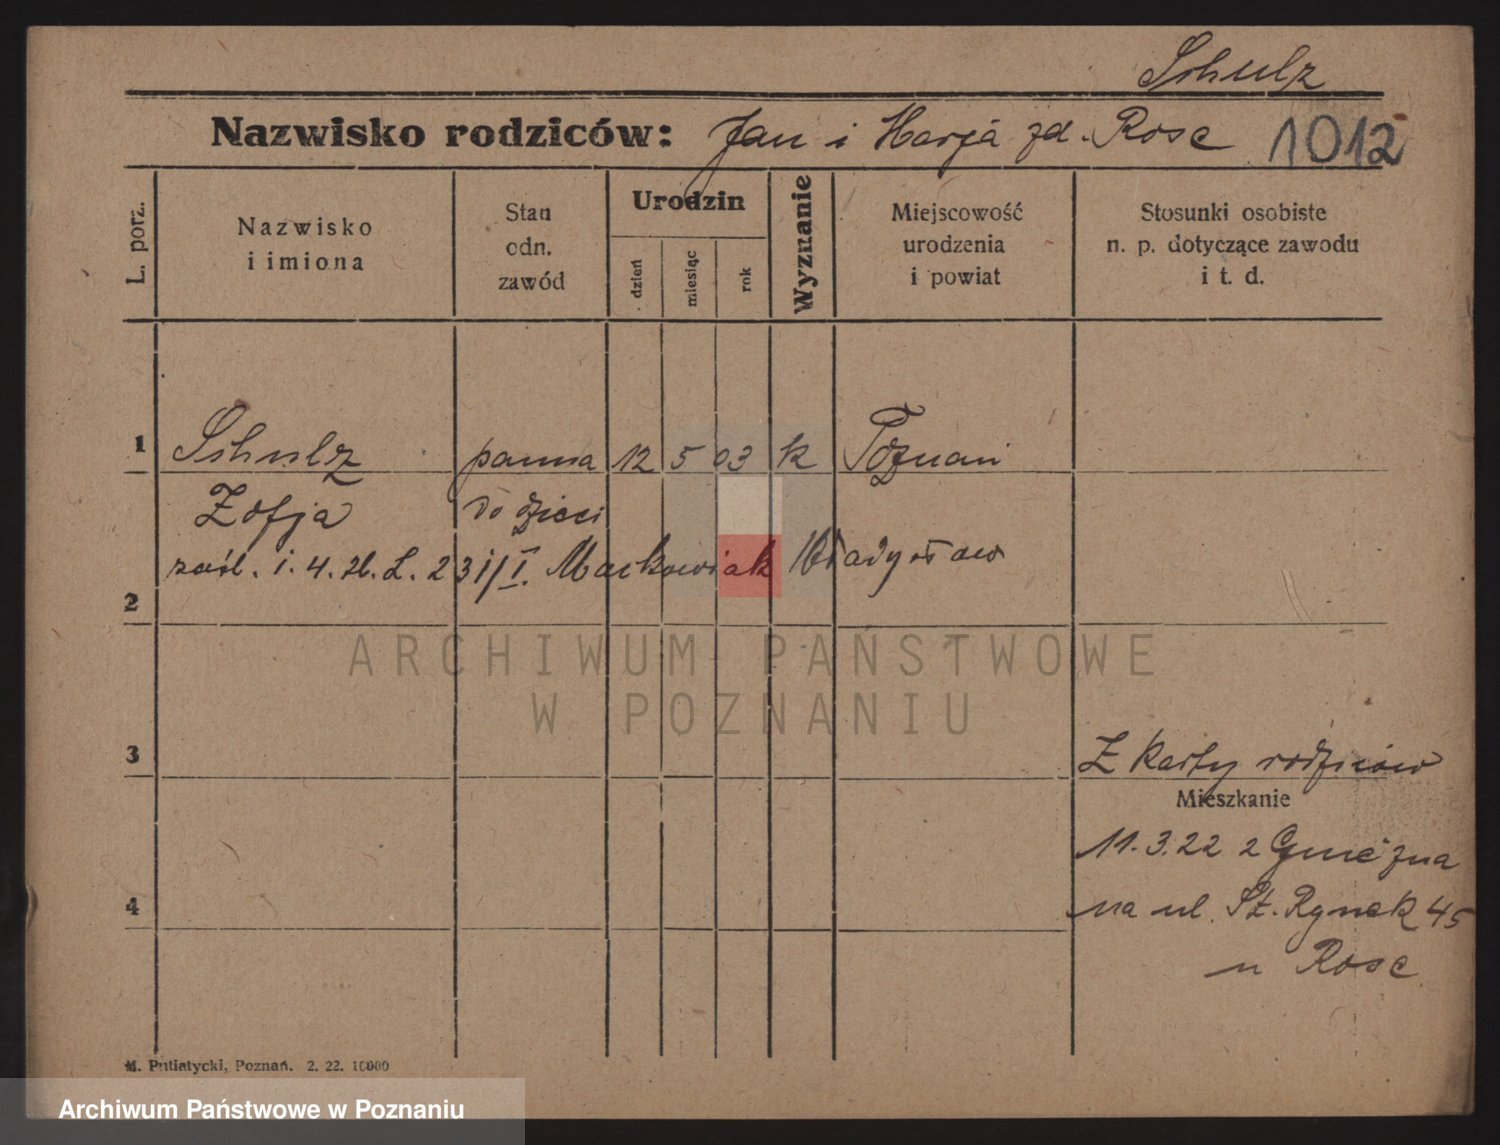 Schulz
Nazwisko rodziców: Jan i Marja zd. Rose 1012
L. porz.
Nazwisko
i imiona
Stan
odn.
zawód
Urodzin
dzień
miesiąc
rok
Wyznanie
Miejscowość
urodzenia
i powiat
Stosunki osobiste
n. p. dotyczące zawodu
i t. d.
1 Schulz panna 12 5 03 k Poznań
Zofja do dzieci
zaśl. i. 4. L. 23 Mackowiak Władysław
2
ARCHIWUM PAŃSTWOWE
W POZNANIU
3
Z karty rodziców
Mieszkanie
11.3.22 z Gniezna
4
na ul. St. Rynek 45
u Rose
M. Putiatycki, Poznań. 2. 22. 10000
Archiwum Państwowe w Poznaniu